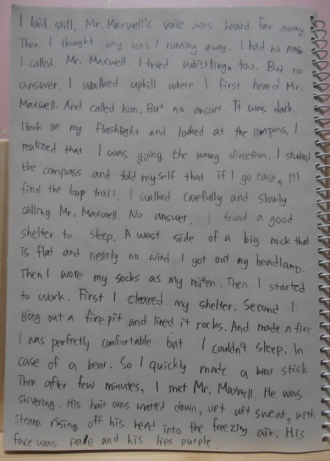 I laid still. Mr. Maxwell's voice was heard far away.
Then I thought why was I running away. I had no
I called Mr. Maxwell. I tried whistling too. But no
answer. I walked uphill where I first heard Mr.
Maxwell. And called him. But no answer. It was dark
I took on my flashlight and looked at the compass, I
realized that I was going the wrong direction. I studied
the compass and told myself that if I go east, I'll
find the loop trail. I walked carefully and slowly
calling Mr. Maxwell. No answer. I found a good
shelter to sleep. A west side of a big rock that
is flat and nearly no wind. I got out my headlamp.
Then I wore my socks as my mitten. Then I started
to work. First I cleared my shelter. Second I
dug out a firepit and lined it rocks. And made a fire
I was perfectly comfortable but I couldn't sleep. In
case of a bear. So I quickly made a bear stick
Then after few minutes, I met Mr. Maxwell. He was
shivering. His hair was matted down, wet wit sweat, with
steam rising off his head into the freezing air. His
face was pale and his lips purple.